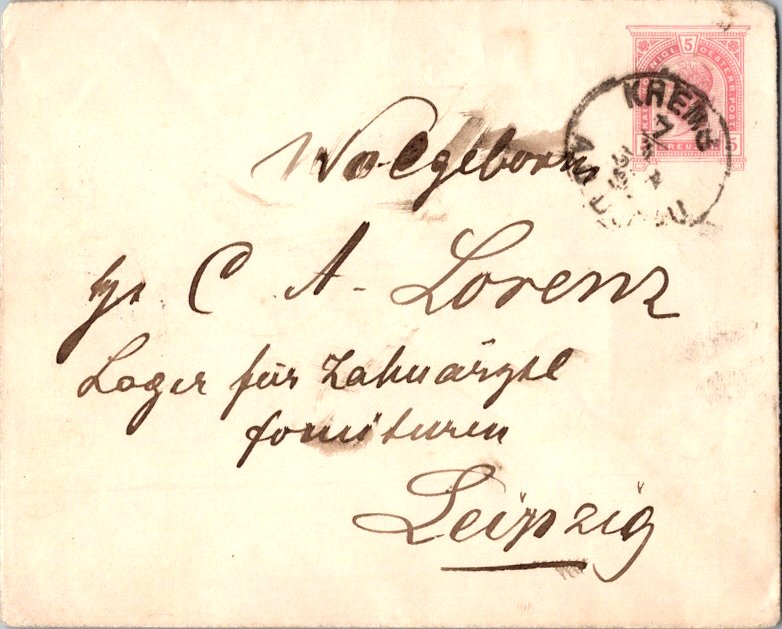 5
KAIS. KÖNIGL. OESTERR. POST
5 KREUZ 5
KREMS
7
A. D. DONAU
Wolgeborn
Hr C A. Lorenz
Lager für Zahnärztl
fornituren
Leipzig